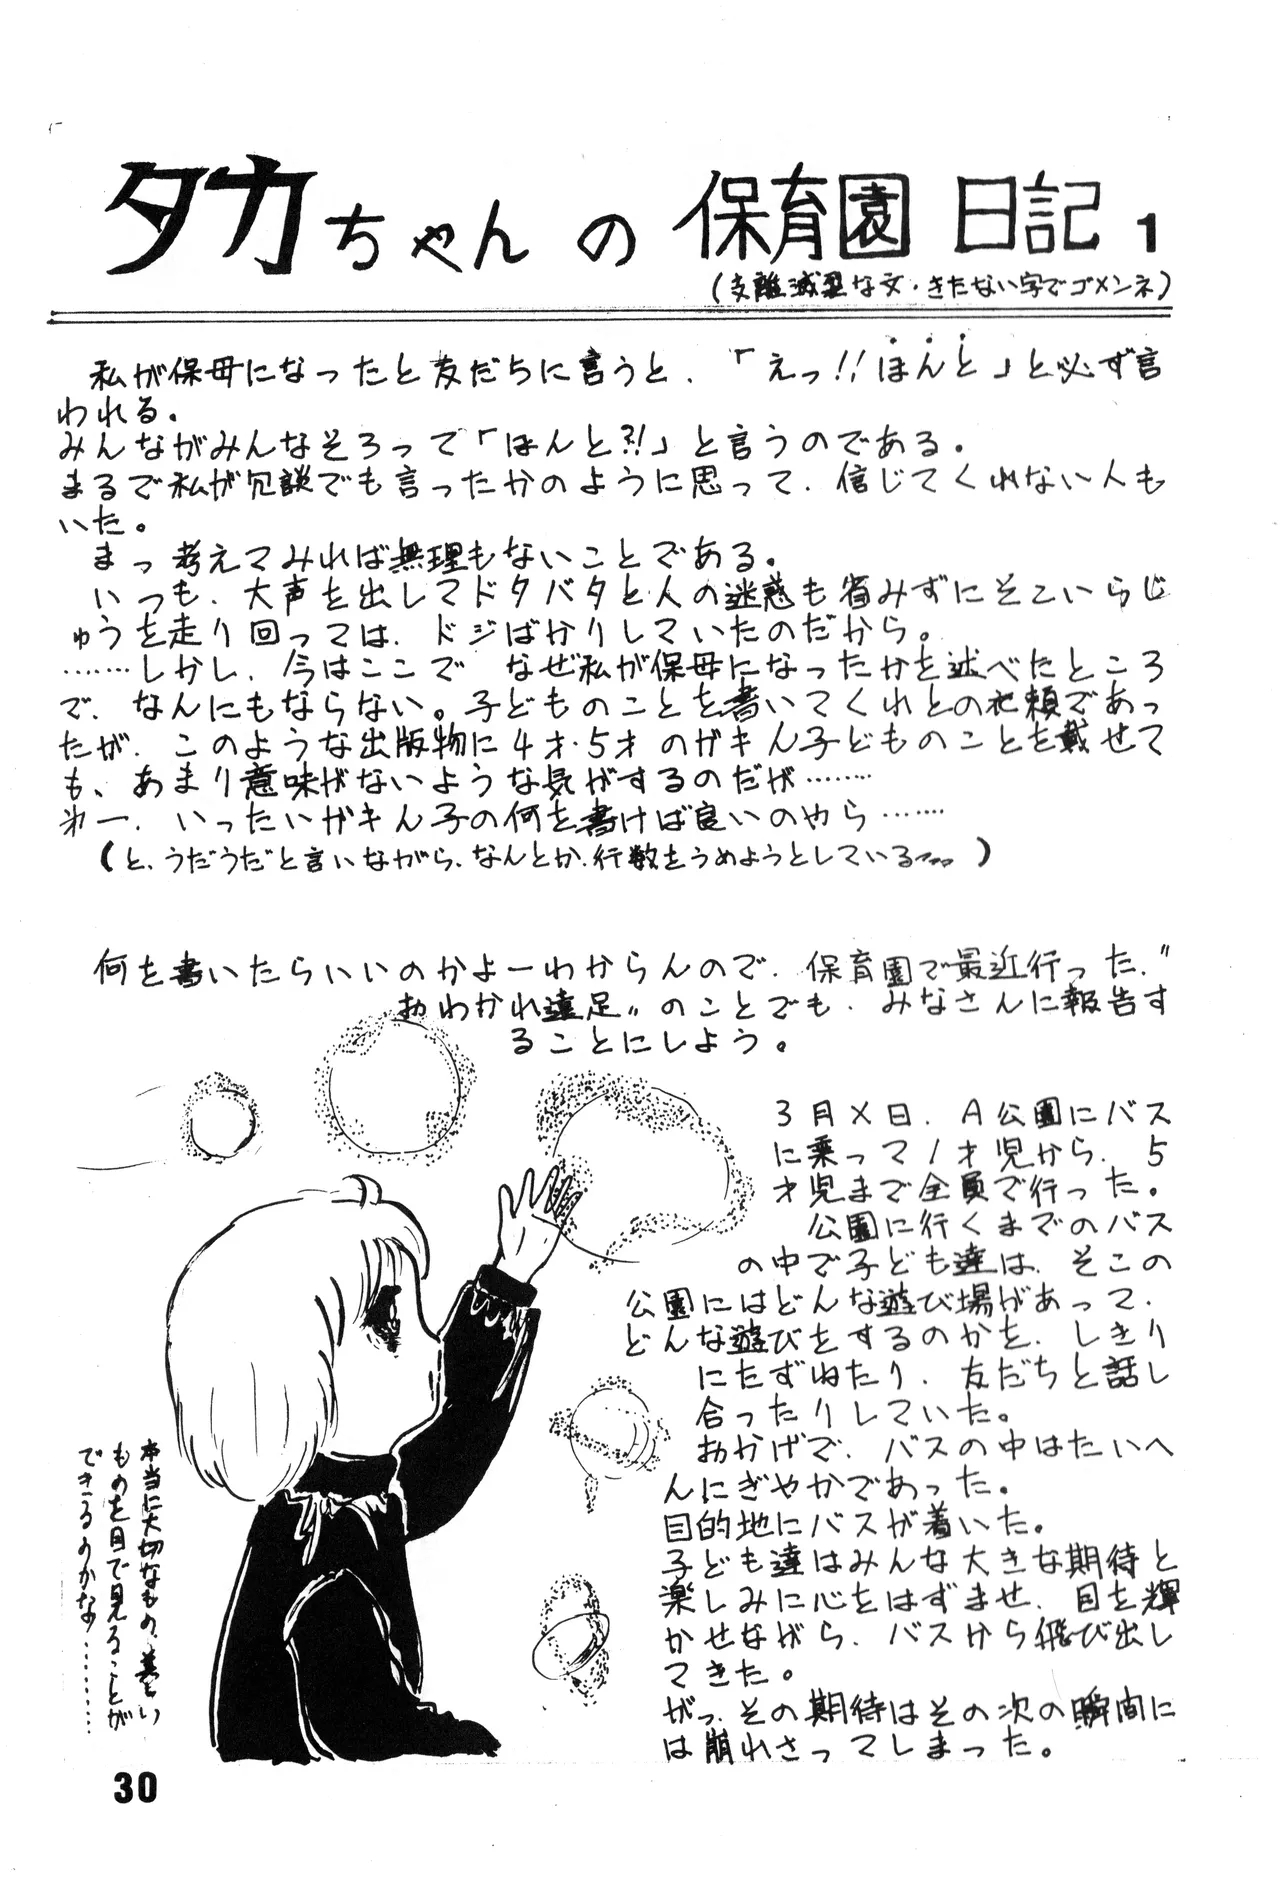 タカちゃんの保育園日記 1
(支離滅裂な文・きたない字でゴメンネ)
私が保母になったと友だちに言うと、「えっ!!ほんと」と必ず言
われる。
みんながみんなそろって「ほんと?!」と言うのである。
まるで私が冗談でも言ったかのように思って、信じてくれない人も
いた。
まっ考えてみれば無理もないことである。
いつも、大声を出してドタバタと人の迷惑も省みずにそこいらじ
ゅうを走り回っては、ドジばかりしていたのだから。
……しかし、今はここで なぜ私が保母になったかを述べたところ
で、なんにもならない。子どものことを書いてくれとの依頼であっ
たが、このような出版物に4才・5才のガキん子どものことを載せて
も、あまり意味がないような気がするのだが……
わー、いったいガキん子の何を書けば良いのやら……
(と、うだうだと言いながら、なんとか、行数をうめようとしている)
何を書いたらいいのかよーわからんので、保育園で最近行った、〃
おわかれ遠足〃のことでも、みなさんに報告す
ることにしよう。
3月×日、A公園にバス
に乗って1才児から、5
才児まで全員で行った。
公園に行くまでのバス
の中で子ども達は、そこの
公園にはどんな遊び場があって、
どんな遊びをするのかを、しきり
にたずねたり、友だちと話し
合ったりしていた。
おかげで、バスの中はたいへ
んにぎやかであった。
目的地にバスが着いた。
子ども達はみんな大きな期待と
楽しみに心をはずませ、目を輝
かせながら、バスから飛び出し
てきた。
がっ、その期待はその次の瞬間に
は崩れさってしまった。
本当に大切なもの、美しい
ものを目で見ることが
できるのかな………
30